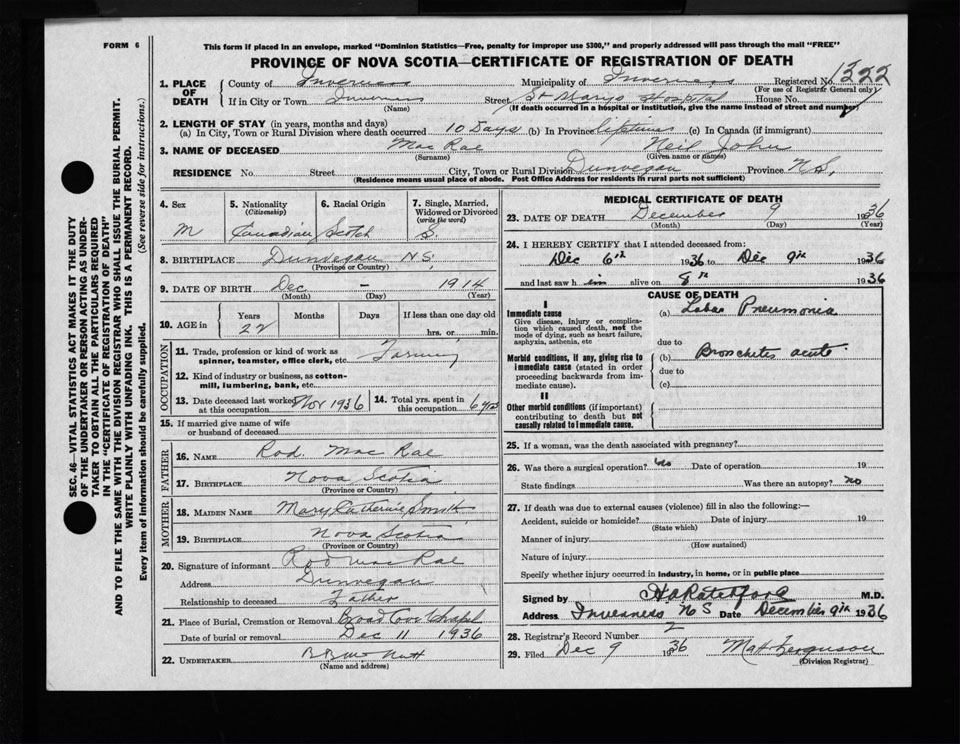 FORM 6
This form if placed in an envelope, marked "Dominion Statistics—Free, penalty for improper use $300," and properly addressed will pass through the mail "FREE"
PROVINCE OF NOVA SCOTIA—CERTIFICATE OF REGISTRATION OF DEATH
SEC. 46—VITAL STATISTICS ACT MAKES IT THE DUTY
OF THE UNDERTAKER OR PERSON ACTING AS UNDER-
TAKER TO OBTAIN ALL THE PARTICULARS REQUIRED
IN THE "CERTIFICATE OF REGISTRATION OF DEATH"
AND TO FILE THE SAME WITH THE DIVISION REGISTRAR WHO SHALL ISSUE THE BURIAL PERMIT.
WRITE PLAINLY WITH UNFADING INK. THIS IS A PERMANENT RECORD.
Every item of Information should be carefully supplied. (See reverse side for instructions.)
1. PLACE OF DEATH County of Inverness Municipality of Inverness Registered No. 1322
(For use of Registrar General only)
If in City or Town Inverness Street St Marys Hospital House No.
(Name) (If death occurred in a hospital or institution, give the name instead of street and number)
2. LENGTH OF STAY (in years, months and days)
(a) In City, Town or Rural Division where death occurred 10 Days (b) In Province lifetime (c) In Canada (if immigrant)
3. NAME OF DECEASED Mac Rae Neil John
(Surname) (Given name or names)
RESIDENCE No. Street City, Town or Rural Division Dunvegan Province N.S.
(Residence means usual place of abode. Post Office Address for residents in rural parts not sufficient)
4. Sex 5. Nationality (Citizenship) 6. Racial Origin 7. Single, Married, Widowed or Divorced (write the word)
M Canadian Scotch S.
8. BIRTHPLACE Dunvegan N.S.
(Province or Country)
9. DATE OF BIRTH Dec - 1914
(Month) (Day) (Year)
10. AGE in Years Months Days If less than one day old
22 hrs. or min.
OCCUPATION
11. Trade, profession or kind of work as spinner, teamster, office clerk, etc. Farming
12. Kind of industry or business, as cotton-mill, lumbering, bank, etc.
13. Date deceased last worked at this occupation Nov 1936 14. Total yrs. spent in this occupation 6 yrs
15. If married give name of wife or husband of deceased
FATHER
16. NAME Rod. Mac Rae
17. BIRTHPLACE Nova Scotia
(Province or Country)
MOTHER
18. MAIDEN NAME Mary Catherine Smith
19. BIRTHPLACE Nova Scotia
(Province or Country)
20. Signature of informant Rod Mac Rae
Address Dunvegan
Relationship to deceased Father
21. Place of Burial, Cremation or Removal Broad Cove Chapel
Date of burial or removal Dec 11 1936
22. UNDERTAKER
(Name and address)
MEDICAL CERTIFICATE OF DEATH
23. DATE OF DEATH December 9 1936
(Month) (Day) (Year)
24. I HEREBY CERTIFY that I attended deceased from:
Dec 6th 1936 to Dec 9th 1936
and last saw him alive on 8th 1936
CAUSE OF DEATH
I
Immediate cause (a) Lobar Pneumonia
Give disease, injury or complication which caused death, not the mode of dying, such as heart failure, asphyxia, asthenia, etc
due to
Morbid conditions, if any, giving rise to immediate cause (stated in order proceeding backwards from immediate cause). (b) Bronchitis acute
due to
(c)
II
Other morbid conditions (if important) contributing to death but not causally related to immediate cause.
25. If a woman, was the death associated with pregnancy?
26. Was there a surgical operation? No Date of operation 19
State findings Was there an autopsy? no
27. If death was due to external causes (violence) fill in also the following:—
Accident, suicide or homicide? Date of injury 19
(State which)
Manner of injury
(How sustained)
Nature of injury
Specify whether injury occurred in industry, in home, or in public place
Signed by M.D.
Address Inverness N S Date December 9th 1936
28. Registrar's Record Number 2
29. Filed Dec 9 1936 Mat Ferguson
(Division Registrar)